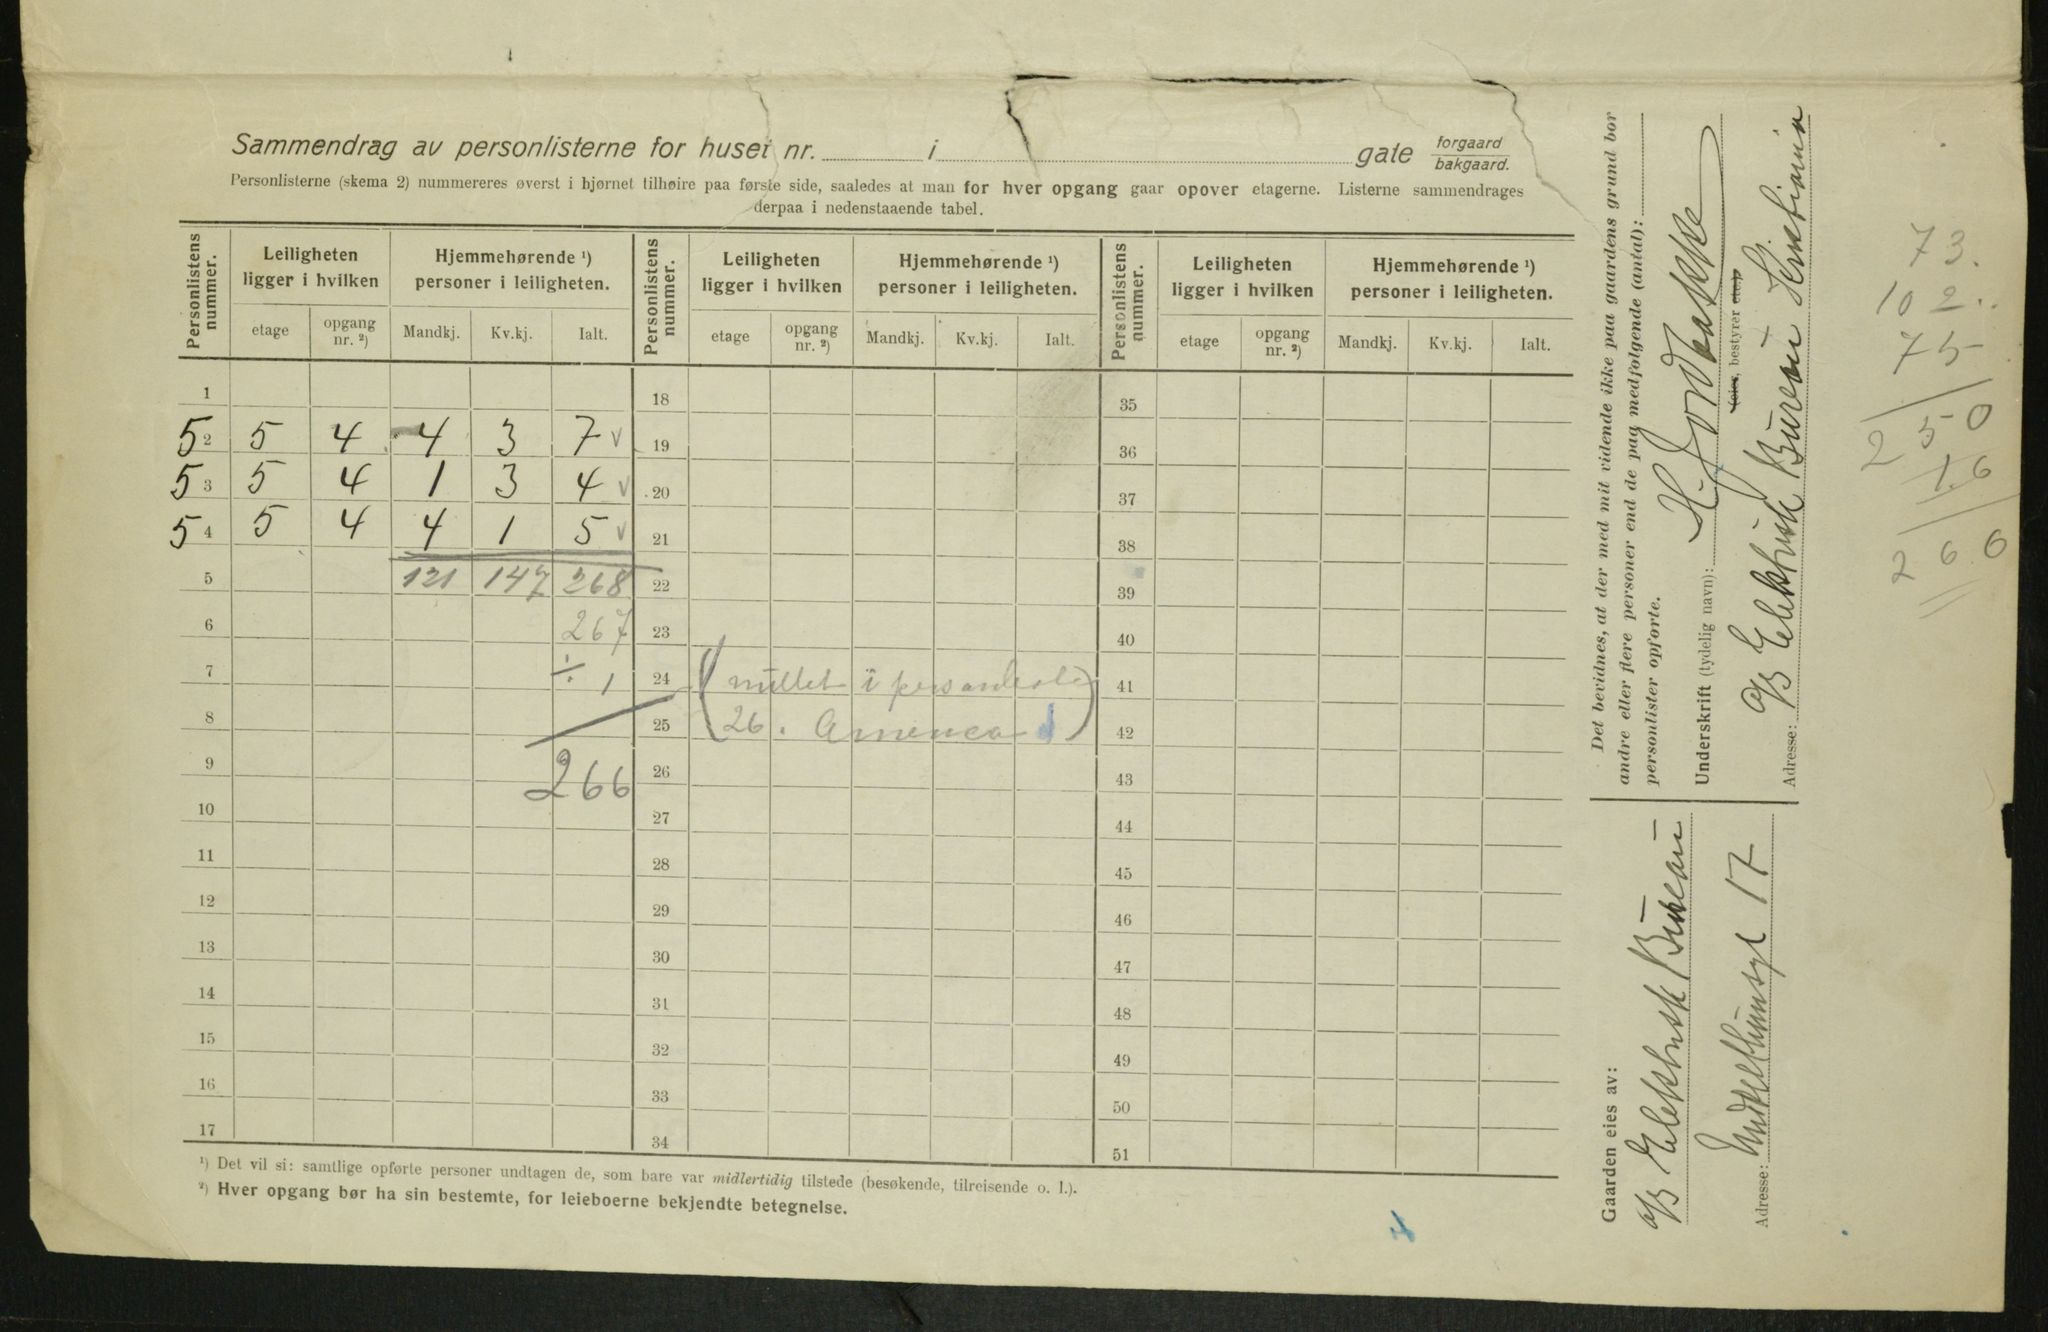 Sammendrag av personlisterne for huset nr. i gate forgaard bakgaard.
Personlisterne (skema 2) nummereres øverst i hjørnet tilhøire paa første side, saaledes at man for hver opgang gaar opover etagerne. Listerne sammendrages
derpaa i nedenstaaende tabel.
Personlistens nummer. Leiligheten ligger i hvilken Hjemmehørende ¹) personer i leiligheten. Personlistens nummer. Leiligheten ligger i hvilken Hjemmehørende ¹) personer i leiligheten. Personlistens nummer. Leiligheten ligger i hvilken Hjemmehørende ¹) personer i leiligheten.
etage opgang nr. ²) Mandkj. Kv.kj. Ialt. etage opgang nr. ²) Mandkj. Kv.kj. Ialt. etage opgang nr. ²) Mandkj. Kv.kj. Ialt.
1 18 35
52 5 4 4 3 7 v 19 36
53 5 4 1 3 4 v 20 37
54 5 4 4 1 5 v 21 38
5 121 147 268 22 39
6 267 23 40
7 ÷ 1 24 ( i 41
8 25 26. America ) 42
9 266 26 43
10 27 44
11 28 45
12 29 46
13 30 47
14 31 48
15 32 49
16 33 50
17 34 51
¹) Det vil si: samtlige opførte personer undtagen de, som bare var midlertidig tilstede (besøkende, tilreisende o. l.).
²) Hver opgang bør ha sin bestemte, for leieboerne bekjendte betegnelse.
Det bevidnes, at der med mit vidende ikke paa gaardens grund bor
andre eller flere personer end de paa medfølgende (antal):
personlister opførte.
Underskrift (tydelig navn):
(eier, bestyrer etc.).
Adresse: A/B Elektrisk Bureau Kristiania
Gaarden eies av:
A/B Elektrisk Bureau
Adresse: Middelthunsgt 17
73.
102.
75
250
16
266